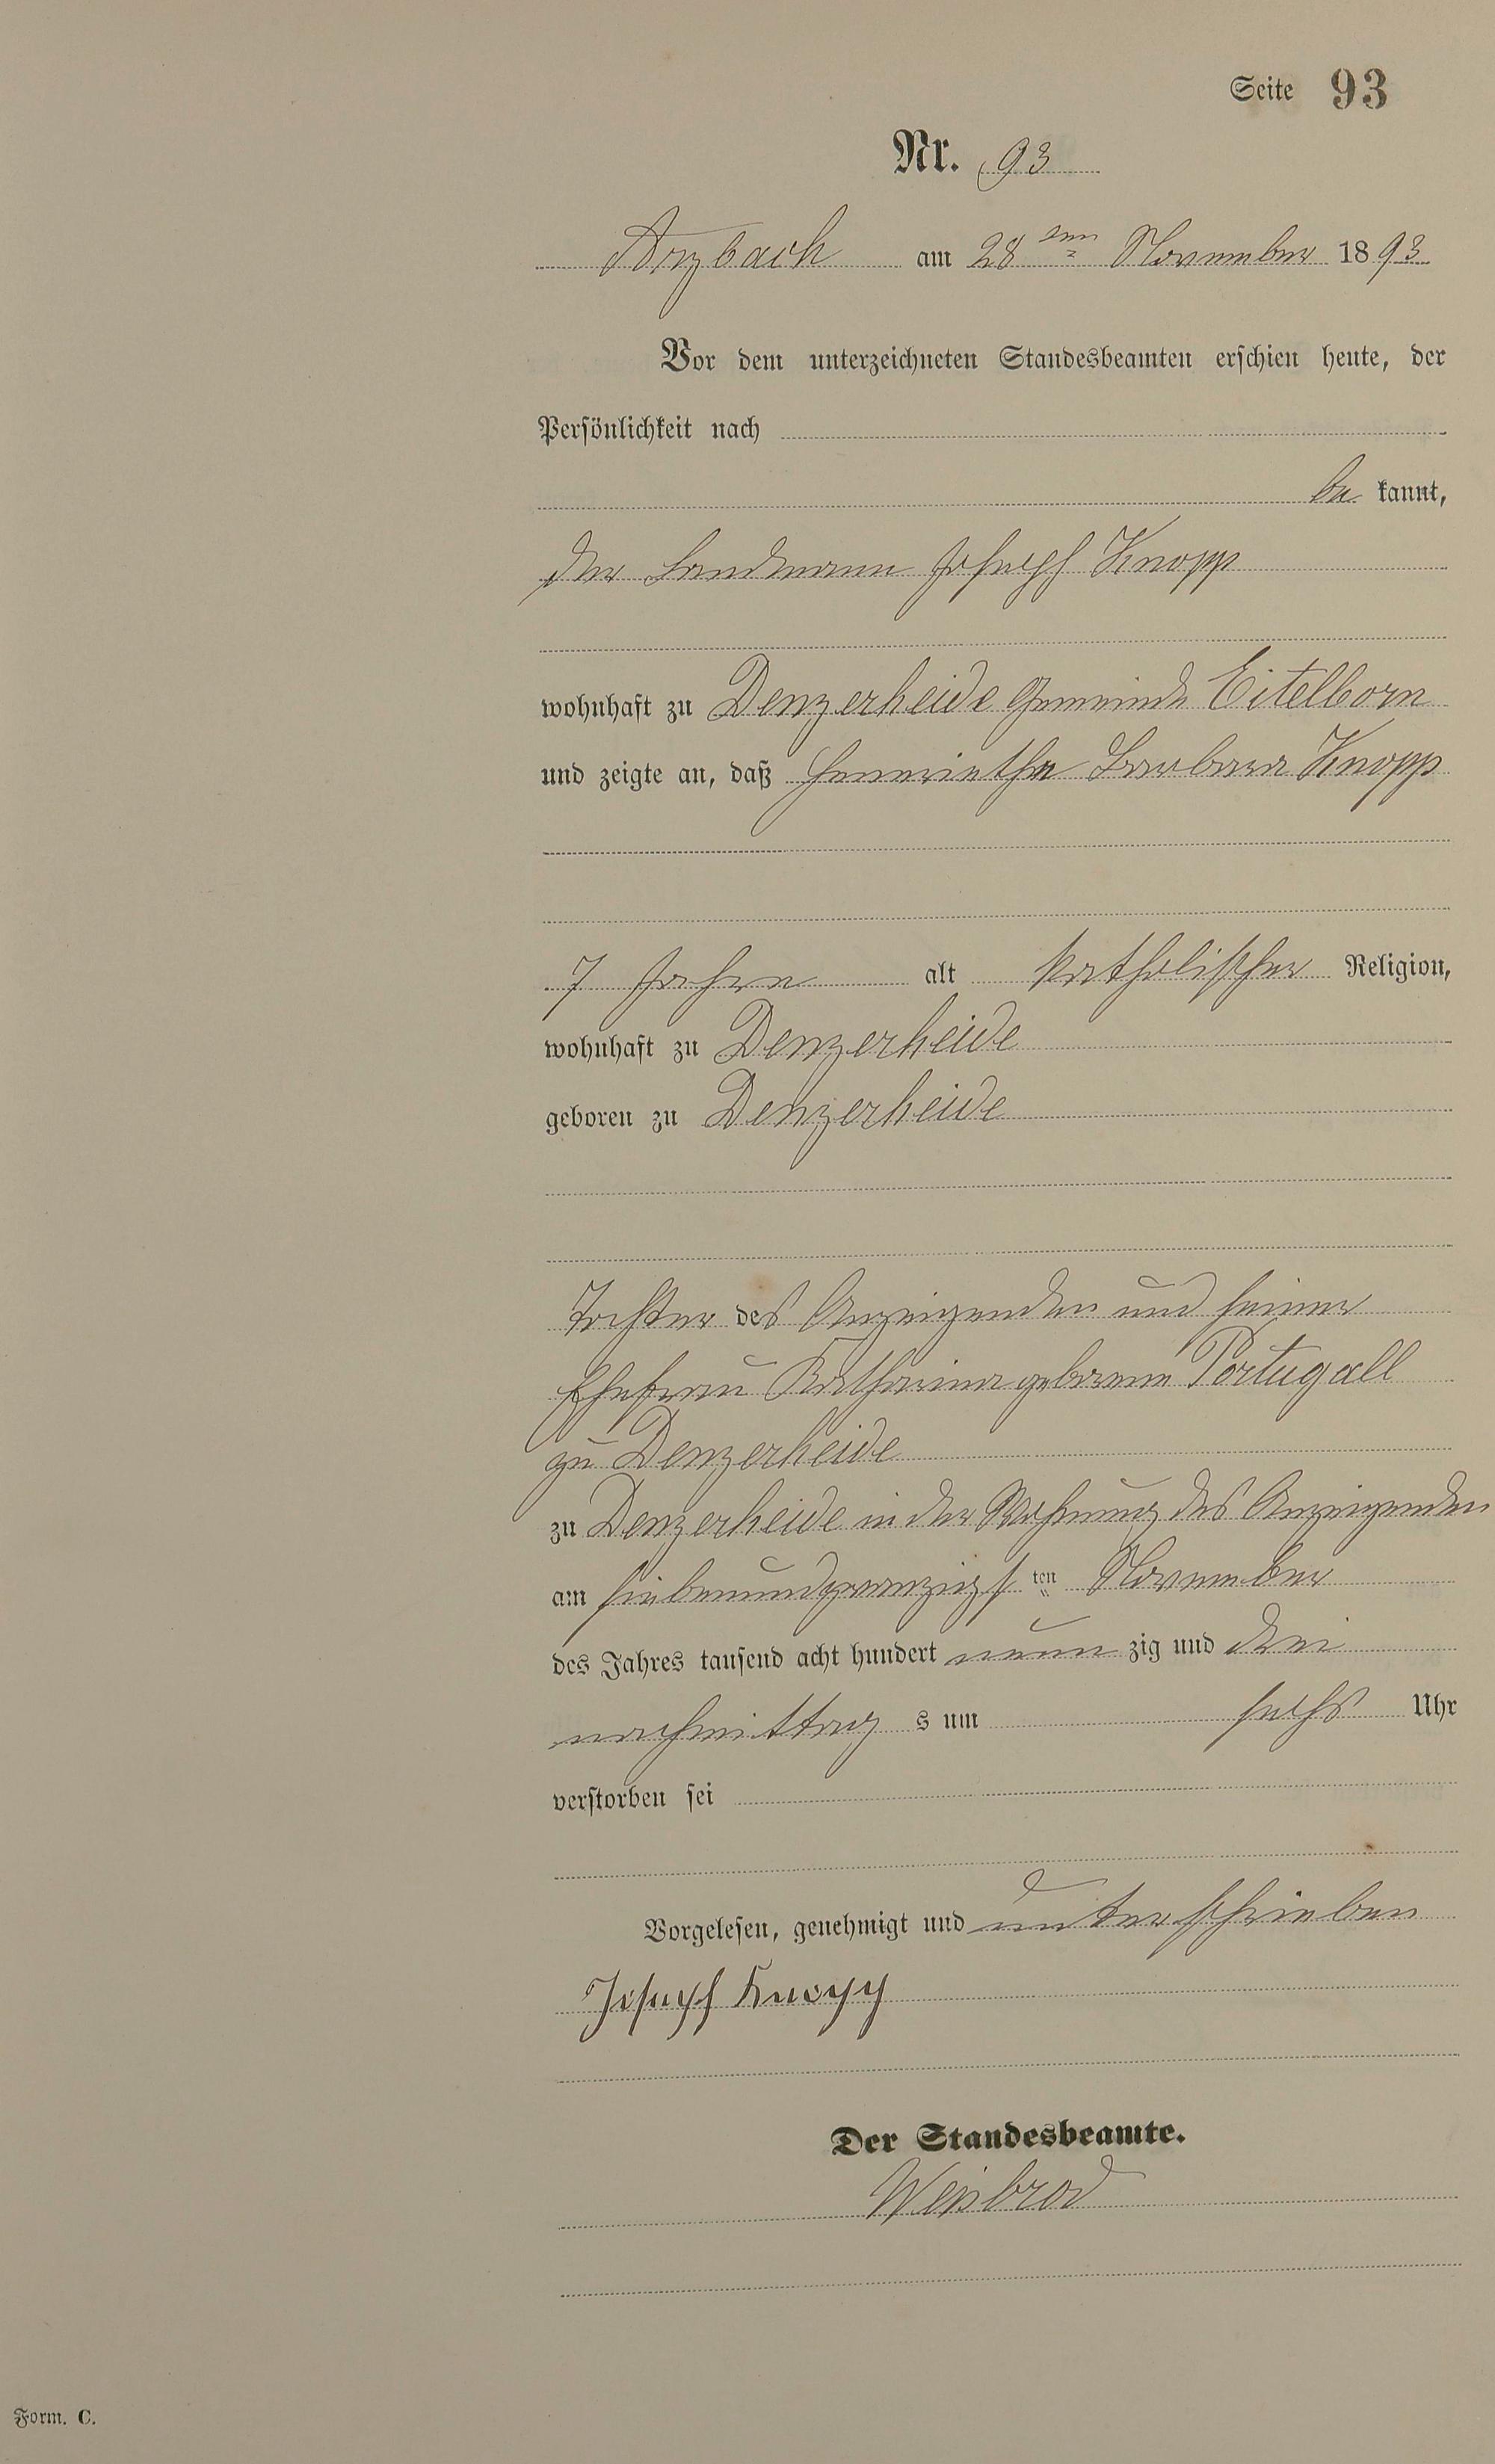 Seite 93
Nr. 93
Arzbach am 28ten November 1893
Vor dem unterzeichneten Standesbeamten erschien heute, der
Persönlichkeit nach
be kannt,
der Landmann Joseph Knopp
wohnhaft zu Denzerheide Gemeinde Eitelborn
und zeigte an, daß Henriethe Barbara Knopp
7 Jahre alt katholischer Religion,
wohnhaft zu Denzerheide
geboren zu Denzerheide
Tochter des Anzeigenden und seiner
Ehefrau Katharina geborene Portugall
zu Denzerheide
zu Denzerheide in der Wohnung des Anzeigenden
am siebenundzwanzigs ten November
des Jahres tausend acht hundert neun zig und drei
nachmittag s um sechs Uhr
verstorben sei
Vorgelesen, genehmigt und unterschrieben
Joseph Knopp
Der Standesbeamte.
Weisbrod
Form. C.